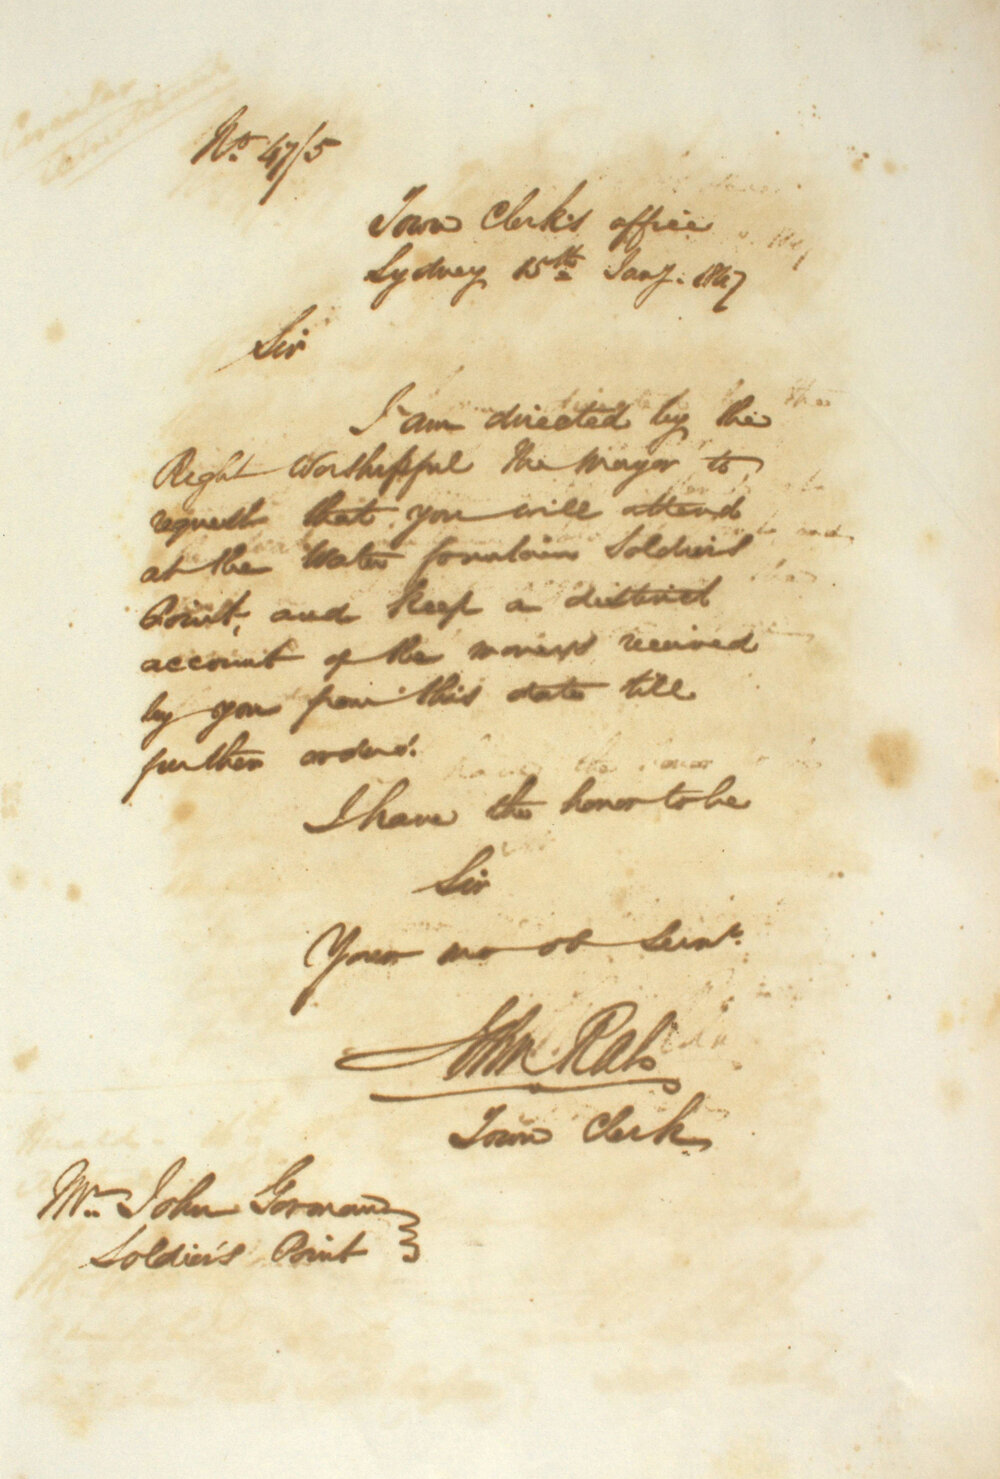 No. 47/5
Town Clerk's office
Sydney 15th Jany. 1847
Sir
I am directed by the
Right Worshipful the Mayor to
request that you will attend
at the Water fountain Soldiers
Point, and keep a distinct
account of the moneys received
by you from this date till
further orders.
I have the honor to be
Sir
Your mo ob Servt.
John Rae
Town Clerk
Mr. John Gorman
Soldier's Point